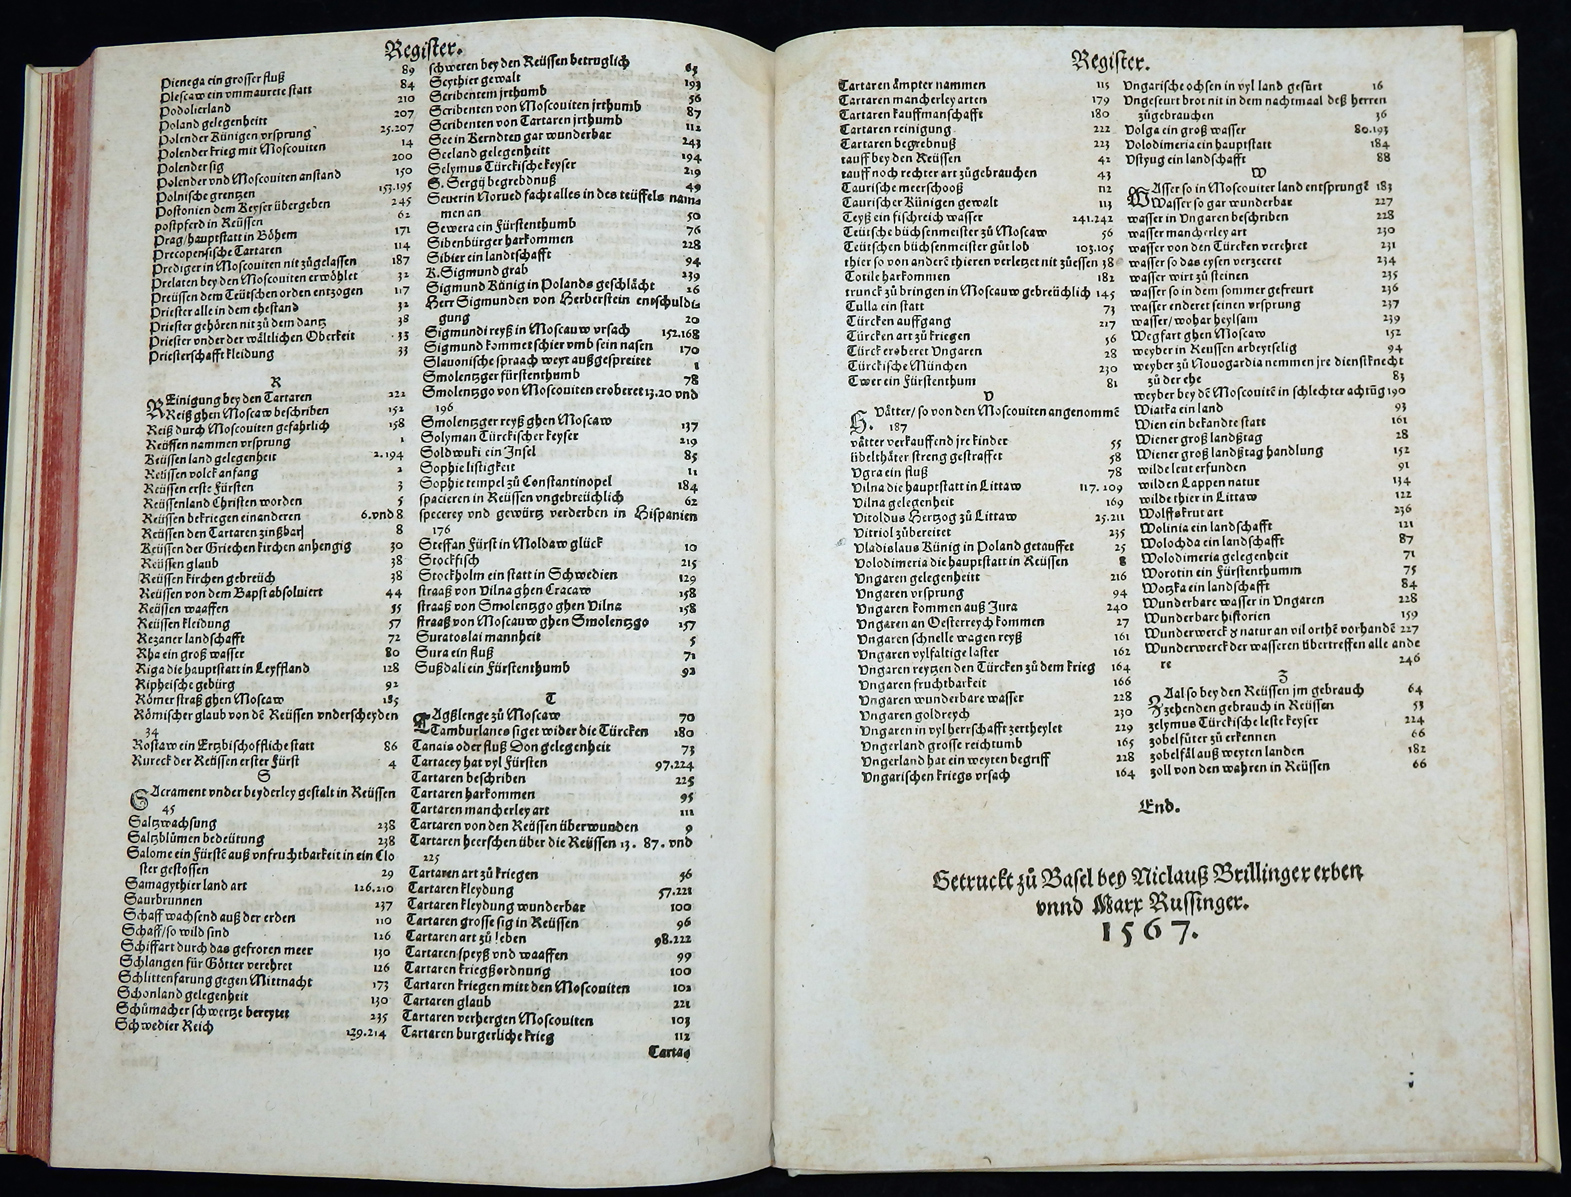 Register.
Pienega ein grosser fluß 89
Plescaw ein vmmaurete statt 84
Podolierland 210
Poland gelegenheitt 207
Polender Künigen vrsprung 25.207
Polender krieg mit Moscouiten 14
Polender sig 200
Polender vnd Moscouiten anstand 150
Polnische grentzen 153.195
Postonien dem Keyser übergeben 245
postpferd in Reüssen 62
Prag/hauptstatt in Böhem 171
Precopensische Tartaren 114
Prediger in Moscouiten nit zůgelassen 187
Prelaten bey den Moscouiten erwöhlet 32
Preüssen dem Teütschen orden entzogen 117
Priester alle in dem ehestand 32
Priester gehören nit zů dem dantz 38
Priester vnder der wältlichen Oberkeit 33
Priesterschafft kleidung 33
R
REinigung bey den Tartaren 222
Reiß ghen Moscaw beschriben 152
Reiß durch Moscouiten gefahrlich 158
Reüssen nammen vrsprung 1
Reüssen land gelegenheit 2.194
Reüssen volck anfang 2
Reüssen erste Fürsten 3
Reüssenland Christen worden 5
Reüssen bekriegen einanderen 6.vnd 8
Reüssen den Tartaren zinßbar 8
Reüssen der Griechen kirchen anhengig 30
Reüssen glaub 38
Reüssen kirchen gebreüch 38
Reüssen von dem Bapst absoluiert 44
Reüssen waaffen 55
Reüssen kleidung 57
Rezaner landschafft 72
Rha ein groß wasser 80
Riga die hauptstatt in Leyffland 128
Ripheische gebürg 92
Römer straß ghen Moscaw 185
Römischer glaub von dē Reüssen vnderscheyden
34
Rostaw ein Ertzbischoffliche statt 86
Rureck der Reüssen erster Fürst 4
S
SAcrament vnder beyderley gestalt in Reüssen
45
Saltzwachsung 238
Saltzblůmen bedeütung 238
Salome ein Fürstē auß vnfruchtbarkeit in ein Clo
ster gestossen 29
Samagythier land art 126.210
Saurbrunnen 237
Schaff wachsend auß der erden 110
Schaff/so wild sind 126
Schiffart durch das gefroren meer 130
Schlangen für Götter verehret 126
Schlittenfarung gegen Mittnacht 173
Schonland gelegenheit 130
Schůmacher schwertze bereytet 235
Schwedier Reich 129.214
schweren bey den Reüssen betruglich 65
Scythier gewalt 193
Scribentem jrthumb 56
Scribenten von Moscouiten jrthumb 87
Scribenten von Tartaren jrthumb 112
See in Kerndten gar wunderbar 243
Seeland gelegenheitt 194
Selymus Türckische keyser 219
S. Sergij begrebdnuß 49
Seuerin Norued facht alles in des teüffels nam⸗
men an 50
Sewera ein Fürstenthumb 76
Sibenbürger harkommen 228
Sibier ein landtschafft 94
K. Sigmund grab 239
Sigmund Künig in Polands geschlächt 26
Herr Sigmunden von Herberstein entschuldi⸗
gung 20
Sigmundi reyß in Moscauw vrsach 152.168
Sigmund kommet schier vmb sein nasen 170
Slauonische spraach weyt außgespreitet 1
Smolentzger fürstenthumb 78
Smolentzgo von Moscouiten eroberet 13.20 vnd
196
Smolentzger reyß ghen Moscaw 137
Solyman Türckischer keyser 219
Soldwuki ein Insel 85
Sophie listigkeit 11
Sophie tempel zů Constantinopel 184
spacieren in Reüssen vngebreüchlich 62
specerey vnd gewürtz verderben in Hispanien
176
Steffan Fürst in Moldaw glück 10
Stockfisch 215
Stockholm ein statt in Schwedien 129
straaß von Vilna ghen Cracaw 158
straaß von Smolentzgo ghen Vilna 158
straaß von Moscauw ghen Smolentzgo 157
Suratoslai mannheit 5
Sura ein fluß 71
Sußdali ein Fürstenthumb 92
T
TAgßlenge zů Moscaw 70
Tamburlanes siget wider die Türcken 180
Tanais oder fluß Don gelegenheit 73
Tartacey hat vyl Fürsten 97.224
Tartaren beschriben 225
Tartaren harkommen 95
Tartaren mancherley art 111
Tartaren von den Reüssen überwunden 9
Tartaren heerschen über die Reüssen 13. 87. vnd
225
Tartaren art zů kriegen 56
Tartaren kleydung 57.221
Tartaren kleydung wunderbar 100
Tartaren grosse sig in Reüssen 96
Tartaren art zů leben 98.222
Tartaren speyß vnd waaffen 99
Tartaren kriegßordnung 100
Tartaren kriegen mitt den Moscouiten 102
Tartaren glaub 221
Tartaren verhergen Moscouiten 103
Tartaren burgerliche krieg 112
Tarta⸗
Register.
Tartaren ämpter nammen 115
Tartaren mancherley arten 179
Tartaren kauffmanschafft 180
Tartaren reinigung 222
Tartaren begrebnuß 223
tauff bey den Reüssen 42
tauff noch rechter art zůgebrauchen 43
Taurische meerschooß 112
Tauricher Künigen gewalt 113
Teyß ein fischreich wasser 241.242
Teütsche büchsenmeister zů Moscaw 56
Teütschen büchsenmeister gůt lob 103.105
thier so von anderē thieren verletzet nit zůessen 38
Totile harkommen 182
trunck zů bringen in Moscauw gebreüchlich 145
Tulla ein statt 73
Türcken auffgang 217
Türcken art zů kriegen 56
Türck eroberet Vngaren 28
Türckische München 230
Twer ein Fürstenthum 81
V
S. Vätter/so von den Moscouiten angenommē
187
vätter verkauffend jre kinder 55
übelthäter streng gestraffet 58
Vgra ein fluß 78
Vilna die hauptstatt in Littaw 117.209
Vilna gelegenheit 169
Vitoldus Hertzog zů Littaw 25.211
Vitriol zůbereitet 235
Vladislaus Künig in Poland getauffet 25
Volodimeria die hauptstatt in Reüssen 8
Vngaren gelegenheitt 216
Vngaren vrsprung 94
Vngaren kommen auß Jura 240
Vngaren an Oesterreych kommen 27
Vngaren schnelle wagen reyß 161
Vngaren vylfaltige laster 162
Vngaren reytzen den Türcken zů dem krieg 164
Vngaren fruchtbarkeit 166
Vngaren wunderbare wasser 228
Vngaren goldreych 230
Vngaren in vyl herrschafft zertheylet 229
Vngerland grosse reichtumb 165
Vngerland hat ein weyten begriff 228
Vngarischen kriegs vrsach 164
Vngarische ochsen in vyl land gefürt 16
Vngeseurt brot nit in dem nachtmaal deß herren
zůgebrauchen 36
Volga ein groß wasser 80.193
Volodimeria ein hauptstatt 184
Vstyug ein landschafft 88
W
WAsser so in Moscouiter land entspringē 183
Wasser so gar wunderbar 227
wasser in Vngaren beschriben 228
wasser mancherley art 230
wasser von den Türcken verehret 231
wasser so das eysen verzeeret 234
wasser wirt zů steinen 235
wasser so in dem sommer gefreurt 236
wasser enderet seinen vrsprung 237
wasser/wohar heylsam 239
Wegfart ghen Moscaw 152
weyber in Reussen arbeytselig 94
weyber zů Nouogardia nemmen jre dienstknecht
zů der ehe 83
weyber bey dē Moscouitē in schlechter achtūg 190
Wiatka ein land 93
Wien ein bekandre statt 161
Wiener groß landßtag 28
Wiener groß landßtag handlung 152
wilde leut erfunden 91
wilden Lappen natur 134
wilde thier in Littaw 122
Wolffskrut art 236
Wolinia ein landschafft 121
Wolochda ein landschafft 87
Wolodimeria gelegenheit 71
Worotin ein Fürstenthumm 75
Wotzka ein landschafft 84
Wunderbare wasser in Vngaren 228
Wunderbare historien 159
Wunderwerck d natur an vil orthē vorhandē 227
Wunderwerck der wasseren übertreffen alle ande
re 246
Z
ZAal so bey den Reüssen jm gebrauch 64
zehenden gebrauch in Reüssen 53
zelymus Türckische leste keyser 224
zobelfůter zů erkennen 66
zobelfäl auß weyten landen 182
zoll von den wahren in Reüssen 66
End.
Getruckt zů Basel bey Niclauß Brillinger erben
vnnd Marx Russinger.
1567.